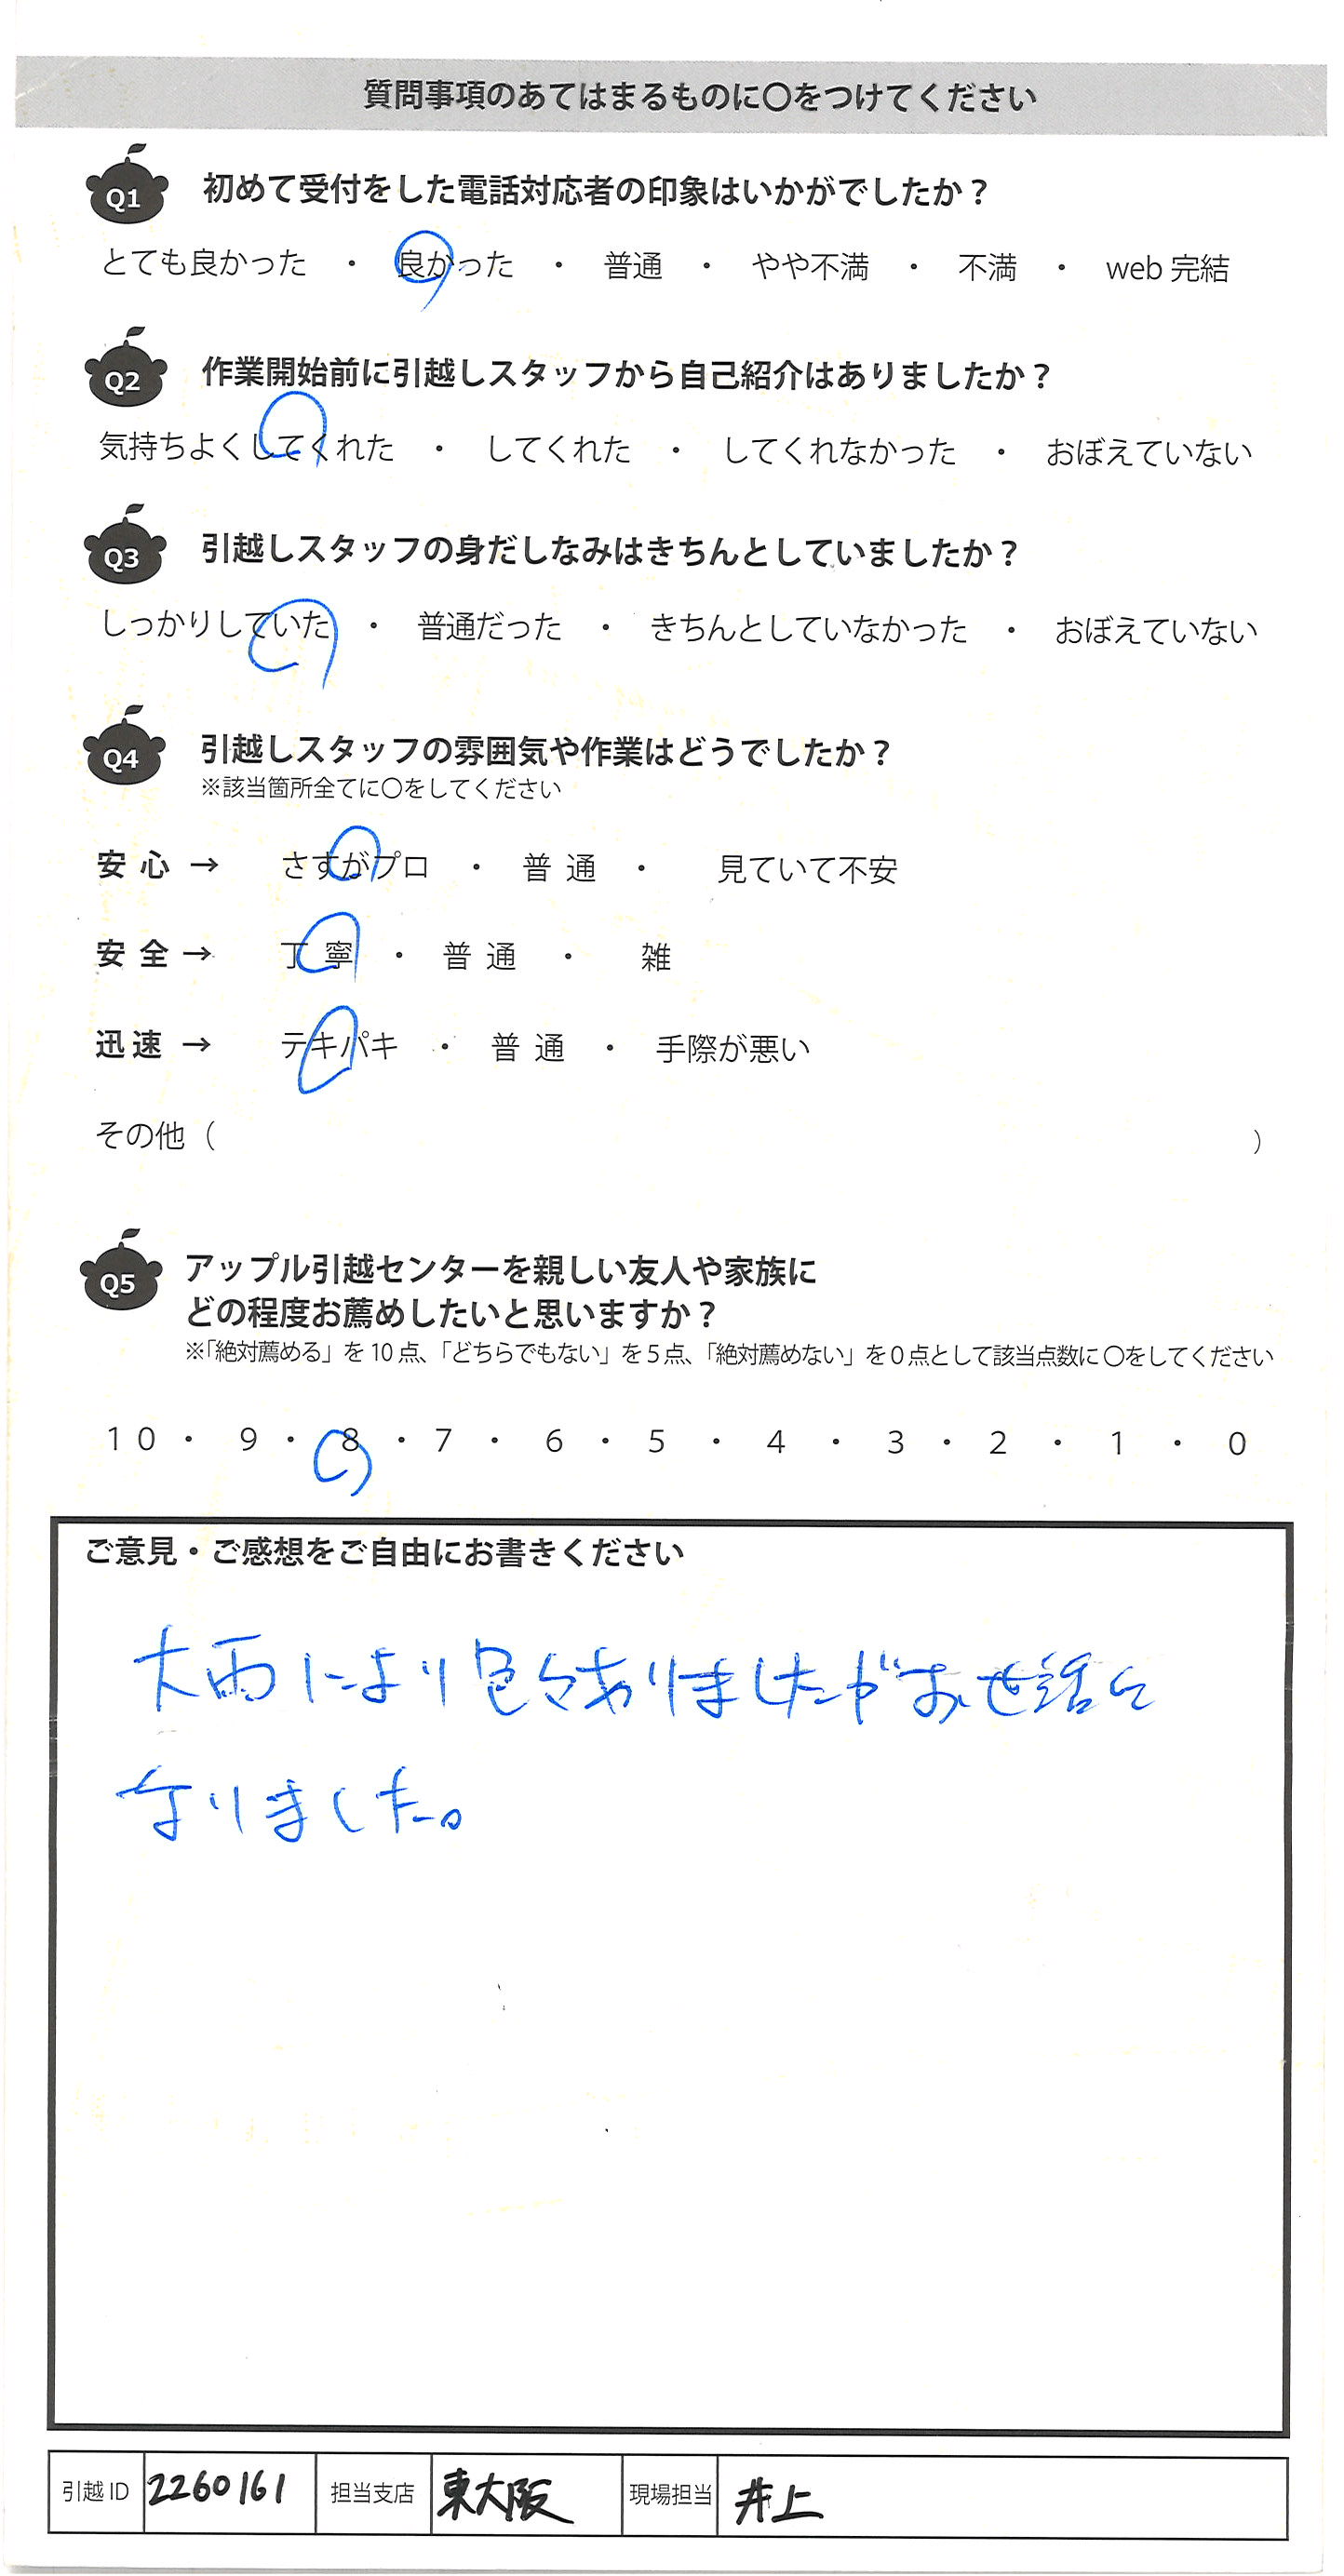 質問事項のあてはまるものに〇をつけてください
Q1 初めて受付をした電話対応者の印象はいかがでしたか？
とても良かった ・ 良かった ・ 普通 ・ やや不満 ・ 不満 ・ web 完結
Q2 作業開始前に引越しスタッフから自己紹介はありましたか？
気持ちよくしてくれた ・ してくれた ・ してくれなかった ・ おぼえていない
Q3 引越しスタッフの身だしなみはきちんとしていましたか？
しっかりしていた ・ 普通だった ・ きちんとしていなかった ・ おぼえていない
Q4 引越しスタッフの雰囲気や作業はどうでしたか？
※該当箇所全てに〇をしてください
安心 → さすがプロ ・ 普通 ・ 見ていて不安
安全 → 丁寧 ・ 普通 ・ 雑
迅速 → テキパキ ・ 普通 ・ 手際が悪い
その他（ ）
Q5 アップル引越センターを親しい友人や家族に
どの程度お薦めしたいと思いますか？
※「絶対薦める」を 10 点、「どちらでもない」を 5 点、「絶対薦めない」を 0 点として該当点数に 〇をしてください
10 ・ 9 ・ 8 ・ 7 ・ 6 ・ 5 ・ 4 ・ 3 ・ 2 ・ 1 ・ 0
ご意見・ご感想をご自由にお書きください
大雨により色々ありましたがお世話に
なりました。
引越 ID 2260161 担当支店 東大阪 現場担当 井上